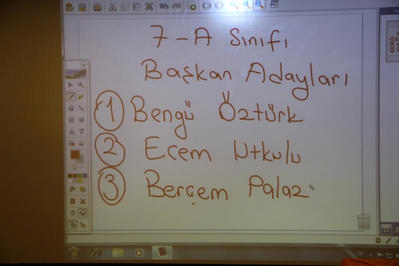 7-A Sınıfı
Başkan Adayları
1 Bengü Öztürk
2 Ecem Utkulu
3 Berçem Palaz